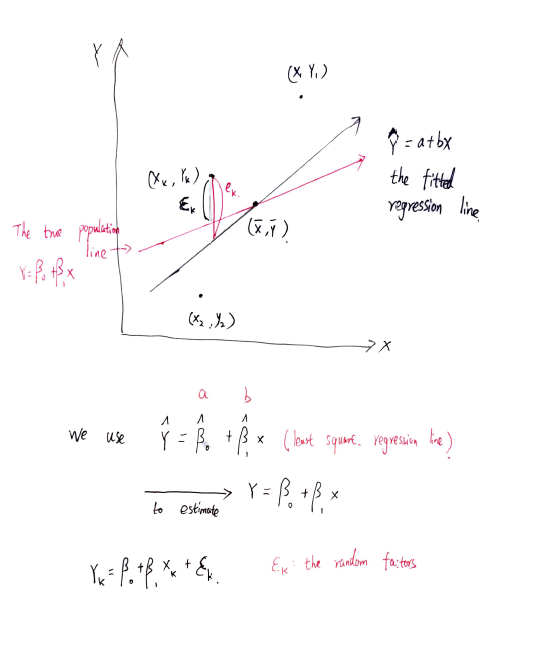 Y
(X, Y₁)
Ŷ = a+bx
the fitted
regression line.
(Xₖ, Yₖ)
eₖ.
εₖ
(X̄, Ȳ)
The true population
line
Y=β₀+β₁x
(X₂, Y₂)
X
a b
We use Ŷ = β̂₀ + β̂₁ x (least square. regression line)
to estimate Y = β₀ + β₁ x
Yₖ = β₀+β₁ Xₖ + εₖ. εₖ: the random factors